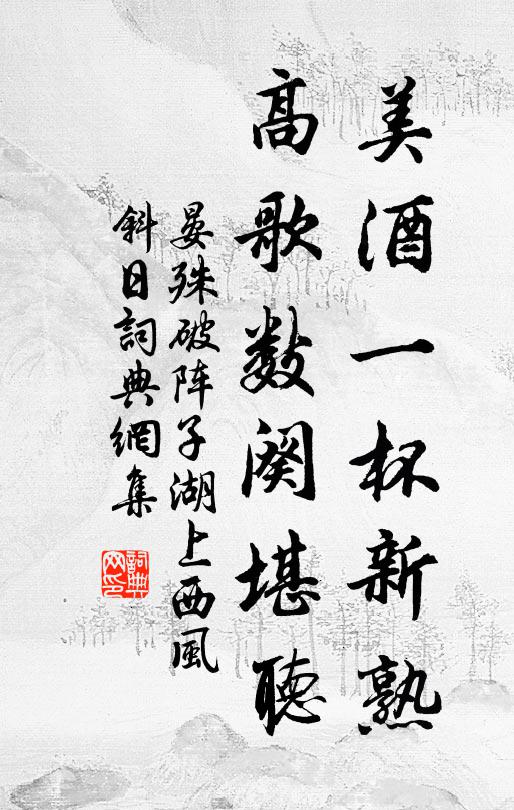 美酒一杯新熟
高歌数阕堪聽
晏殊破阵子湖上西風
斜日詞典網集
詞典網印